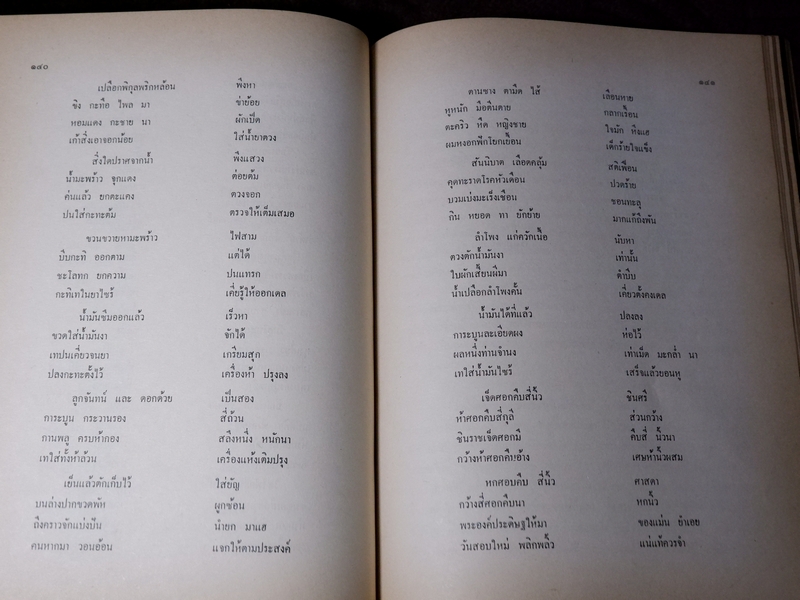 ๑๔๐
เปลือกพิกุลพริกหล้อน พึงหา
ขิง กะทือ ไพล มา ข่าย้อย
หอมแดง กะชาย นา ผักเป็ด
เก้าสิ่งเอาจอกน้อย ใส่น้ำยาตวง
สิ่งใดปราศจากน้ำ พึงแสวง
น้ำมะพร้าว จุกแดง ต่อยต้ม
คั่นแล้ว ยกตะแคง ตวงจอก
ปนใส่กะทะต้ม ตรวจให้เต็มเสมอ
ขวนขวายหามะพร้าว ไฟสาม
บีบกะทิ ออกตาม แต่ได้
ชะโลทก ยกความ ปนแทรก
กะทิเทในยาไซร้ เคี่ยรู้ให้ออกเดล
น้ำมันขึมออกแล้ว เร็วหา
ขวดใส่น้ำมันงา จักได้
เทปนเคี่ยวจนยา เกรียมสุก
ปลงกะทะตั้งไว้ เครื่องห้า ปรุงลง
ลูกจันทน์ และ ดอกด้วย เป็นสอง
การะบูน กระวานรอง สี่ถ้วน
กานพลู ครบห้ากอง สลึงหนึ่ง หนักนา
เทใส่ทั้งห้าล้วน เครื่องแห้งเติมปรุง
เย็นแล้วตักเก็บไว้ ใส่ยัญ
บนล่างปากขวดพัน ผูกซ้อน
ถึงคราวจักแบ่งปัน นำยก มาแฮ
คนหากมา วอนอ้อน แจกให้ตามประสงค์
๑๔๑
ตานขาง ตามืด ไส้ เลื่อนหาย
หูหนัก มือตีนตาย กลากเรื้อน
ตะคริว หืด หญิงชาย ใจมัก หิงแฮ
ผมหงอกพึกโยกเยื้อน เด็กร้ายใจแข็ง
สันนิบาต เลือดคลุ้ม สติเฟือน
คุดทะราดโรคหัวเดือน ปวดร้าย
บวมเบ่งมะเร็งเชือน ชอนทะลุ
กิน หยอด ทา ยักย้าย มากแก้ถึงพัน
ลำโพง แก่ควักเนื้อ นับหา
ตวงตักน้ำมันงา เท่านั้น
ใบผักเสี้ยนผีมา ตำบีบ
น้ำเปลือกลำโพงคั้น เคี่ยวตั้งคงเดล
น้ำมันได้ที่แล้ว ปลงลง
การะบูนละเอียดผง ห่อไว้
ผลหนึ่งท่านจำนง เท่าเม็ด มะกล่ำ นา
เทใส่น้ำมันไซร้ เสร็จแล้วยอนหู
เจ็ดศอกคืบสี่นิ้ว ชินศรี
ห้าศอกคืบสี่กุลี ส่วนกว้าง
ชินราชเจ็ดศอกมี คืบสี่ นิ้วนา
กว้างห้าศอกคืบอ้าง เศษห้านิ้วผสม
หกศอบคืบ สี่นิ้ว ศาสดา
กว้างสี่ศอกคืบนา หกนิ้ว
พระองค์ประดิษฐให้มา ของแม่น ยำเอย
วันสอบใหม่ พลิกพลิ้ว แน่แท้ควรจำ